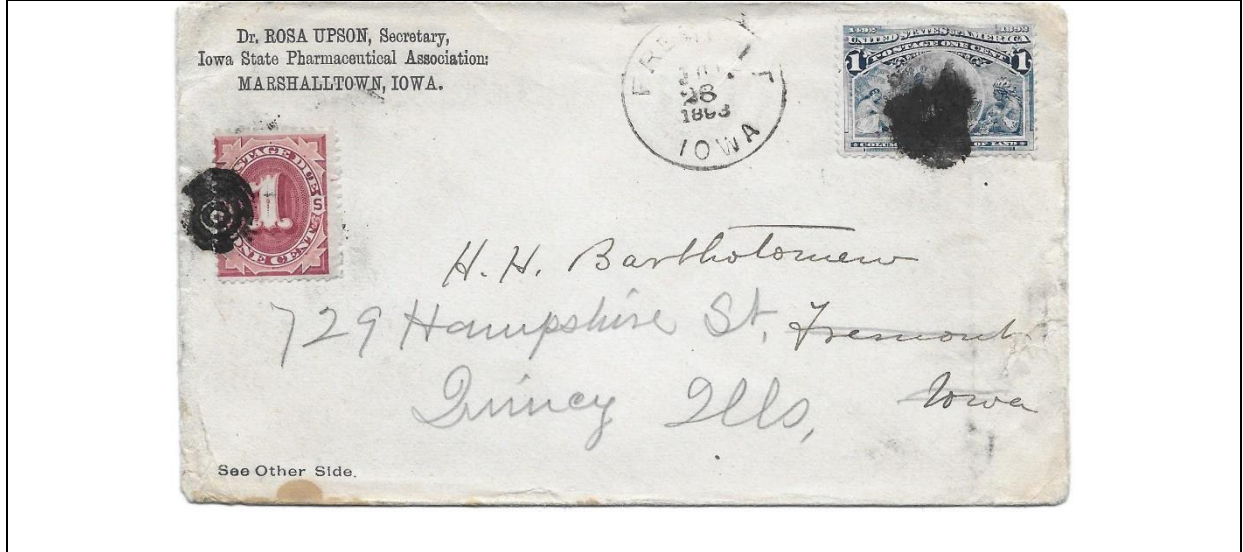 Dr. ROSA UPSON, Secretary,
Iowa State Pharmaceutical Association:
MARSHALLTOWN, IOWA.
26
1893
IOWA
1492 1892
UNITED STATES OF AMERICA
POSTAGE ONE CENT
1 1
OF LAND
POSTAGE DUE
1
ONE CENT
H. H. Bartholomew
729 Hampshire St, Fremont
Quincy Ills, Iowa
See Other Side.